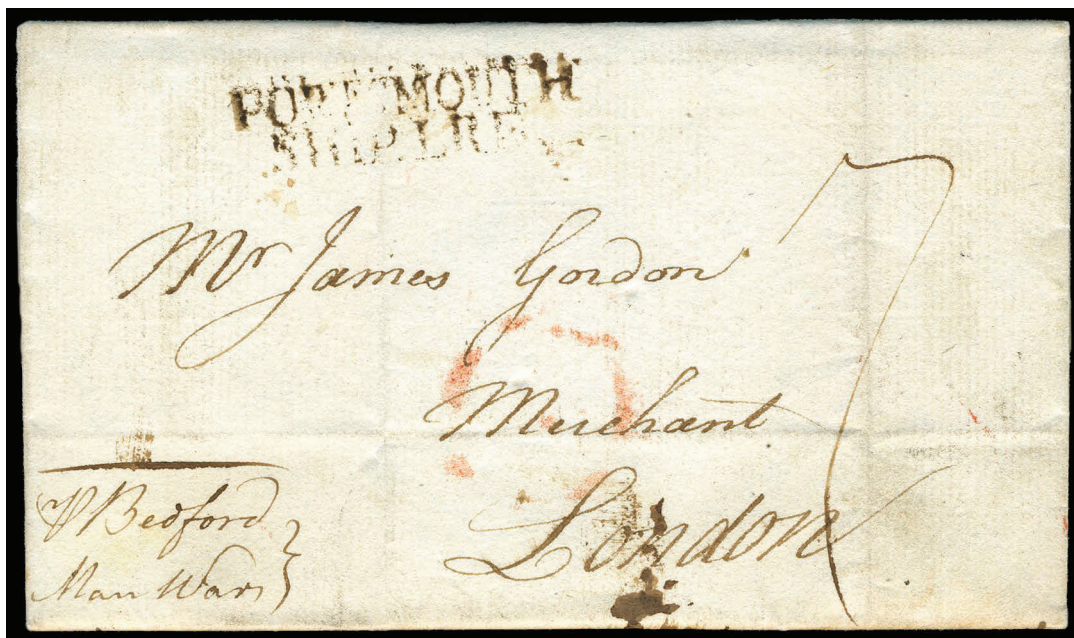 PORTSMOUTH
SHIP LRE
Mr James Gordon
7
Merchant
London
⅌ Bedford
Man Warr